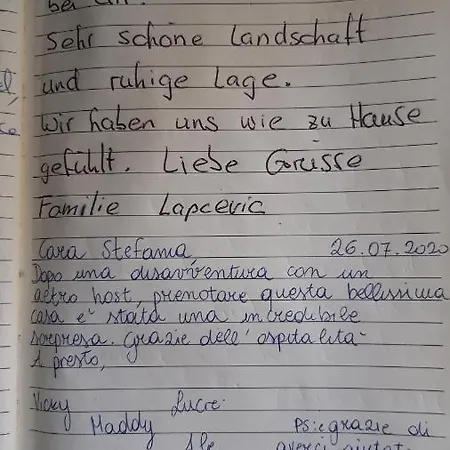 bei
Sehr schöne Landschaft
und ruhige Lage.
Wir haben uns wie zu Hause
gefühlt. Liebe Grüsse
Familie Lapcevic
Cara Stefania, 26.07.2020
Dopo una disavventura con un
altro host, prenotare questa bellissima
casa e' stata una incredibile
sorpresa. Grazie dell'ospitalita-
A presto,
Vicky Lucre.
Maddy PS: grazie di
Ale averci aiutat